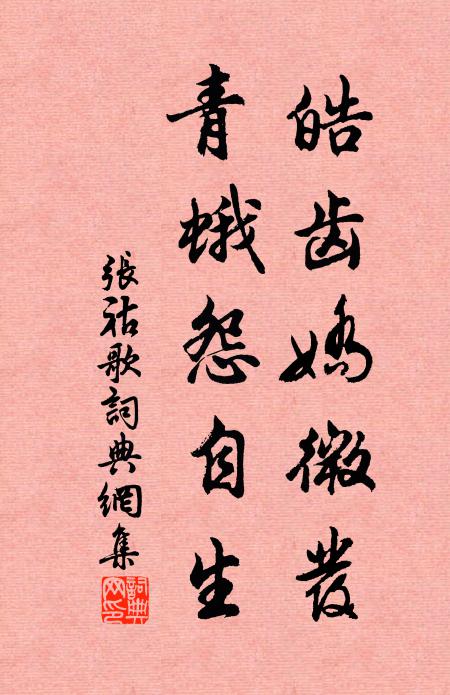 皓齿嬌微發
青蛾怨自生
張祜歌詞典網集
詞典網印